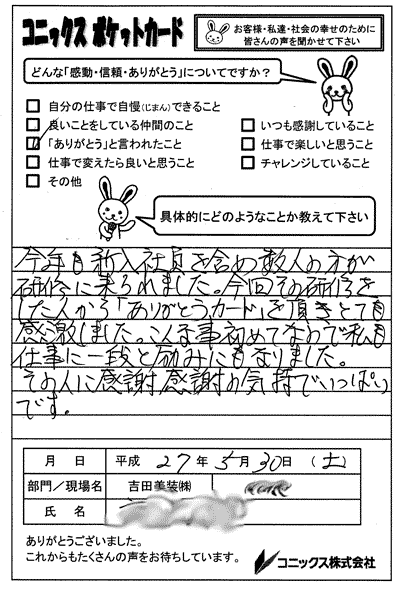 コニックス ポケットカード
お客様・私達・社会の幸せのために
皆さんの声を聞かせて下さい
どんな「感動・信頼・ありがとう」についてですか？
自分の仕事で自慢(じまん)できること
良いことをしている仲間のこと
いつも感謝していること
「ありがとう」と言われたこと
仕事で楽しいと思うこと
仕事で変えたら良いと思うこと
チャレンジしていること
その他
具体的にどのようなことか教えて下さい
今年も新入社員を含め数人の方が
研修に来られました。今回その研修を
した人から「ありがとうカード」を頂きとても
感激しました。こんな事初めてなので私も
仕事に一段と励みにもなりました。
その人に感謝感謝の気持でいっぱい
です。
月 日 平成 27年 5月 30日 (土)
部門／現場名 吉田美装㈱
氏 名
ありがとうございました。
これからもたくさんの声をお待ちしています。
コニックス株式会社